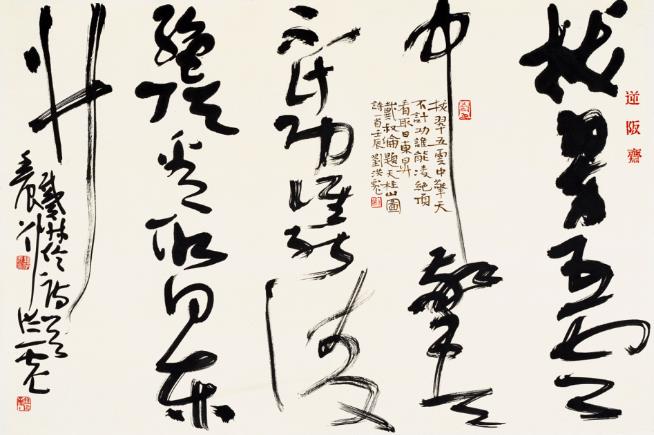 逆阪齋
拔翠五云
中擎天
拔翠五雲中擎天
不計功誰能凌絕頂
看取日東昇
戴叔倫題天柱山圖
詩一首壬辰劉洪彪
不计功谁能凌
绝顶看取日东
升
戴叔伦诗
壬辰刘洪彪